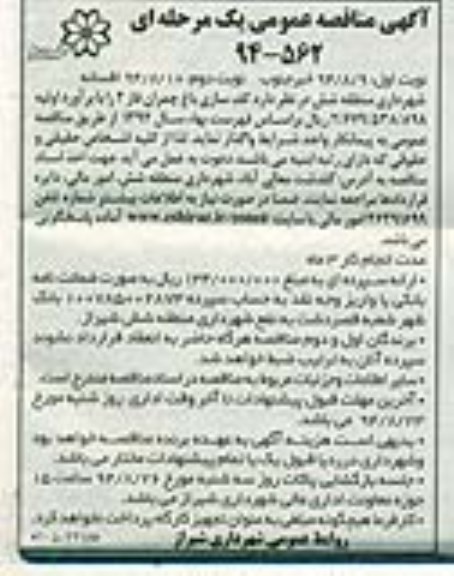 آگهی مناقصه عمومی یک مرحله ای
۹۴-۵۶۲
نوبت اول: ۹۴/۸/۹ خبرجنوب نوبت دوم: افسانه
شهرداری منطقه شش در نظر دارد سازی باغ چمران فاز ۲ را با برآورد اولیه
ریال براساس فهرست بهاء سال ۱۳۹۴ از طریق مناقصه
عمومی به پیمانکار واجد شرایط واگذار نماید. لذا از کلیه اشخاص حقیقی و
حقوقی که دارای رتبه ابنیه می باشند دعوت به عمل می آید جهت اخذ اسناد
مناقصه به آدرس: معالی آباد شهرداری منطقه شش، امور مالی، دایره
قراردادها مراجعه نمایند. ضمنا در صورت نیاز به اطلاعات بیشتر شماره تلفن
امور مالی یا سایت آماده پاسخگوئی
می باشد.
مدت انجام کار ۳ ماه
• ارائه سپرده ای به مبلغ ریال به صورت ضمانت نامه
بانکی یا واریز وجه نقد به حساب سپرده بانک
شهر شعبه قصردشت به نفع شهرداری منطقه شش شیراز.
• برندگان اول و دوم مناقصه هرگاه حاضر به انعقاد قرارداد نشوند
سپرده آنان به ترتیب ضبط خواهد شد.
• سایر اطلاعات و جزئیات مربوط به مناقصه در اسناد مناقصه مندرج است.
• آخرین مهلت قبول پیشنهادات تا آخر وقت اداری روز شنبه مورخ
می باشد.
• بدیهی است هزینه آگهی به عهده برنده مناقصه خواهد بود
وشهرداری در رد یا قبول یک یا تمام پیشنهادات مختار می باشد.
• جلسه بازگشایی پاکات روز سه شنبه مورخ ساعت ۱۵
حوزه معاونت اداری مالی شهرداری شیراز می باشد.
• کارفرما هیچگونه مبلغی به عنوان تجهیز کارگاه پرداخت نخواهد کرد.
روابط عمومی شهرداری شیراز